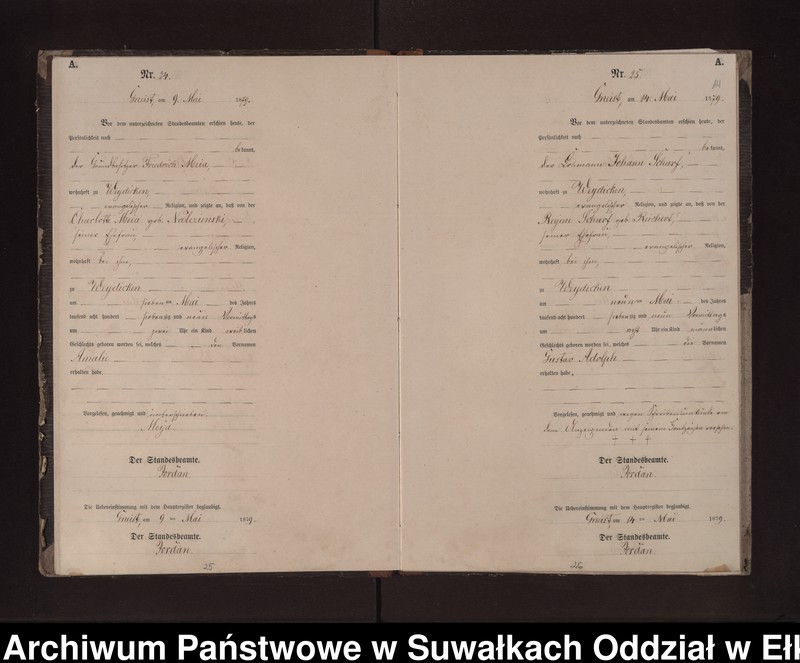 A.
Nr. 24.
Gneist, am 9. Mai 1879.
Vor dem unterzeichneten Standesbeamten erschien heute, der
Persönlichkeit nach
bekannt,
der Grundbesitzer Friedrich
wohnhaft zu Weydicken,
evangelischer Religion, und zeigte an, daß von der
Charlotte geb.
seiner Ehefrau,
evangelischer Religion,
wohnhaft bei ihm,
zu Weydicken
am sieben ten Mai des Jahres
tausend acht hundert siebenzig und neun Vormittags
um zwei Uhr ein Kind weiblichen
Geschlechts geboren worden sei, welches den Vornamen
Amalie
erhalten habe
Vorgelesen, genehmigt und unterschrieben
Der Standesbeamte.
Jordan.
Die Uebereinstimmung mit dem Hauptregister beglaubigt.
Gneist, am 9 ten Mai 1879.
Der Standesbeamte.
Jordan.
25
A.
Nr. 25.
Gneist, am 14. Mai 1879.
Vor dem unterzeichneten Standesbeamten erschien heute, der
Persönlichkeit nach
bekannt,
der Losmann Johann Scharf,
wohnhaft zu Weydicken,
evangelischer Religion, und zeigte an, daß von der
Regine Scharf geb. Ruchert,
seiner Ehefrau,
evangelischer Religion,
wohnhaft bei ihm,
zu Weydicken
am neun ten Mai des Jahres
tausend acht hundert siebenzig und neun Vormittags
um acht Uhr ein Kind männlichen
Geschlechts geboren worden sei, welches die Vornamen
Gustav Adolph
erhalten habe.
Vorgelesen, genehmigt und wegen Schreibensunkunde von
dem Anzeigenden mit seinem Handzeichen versehen.
+ + +
Der Standesbeamte.
Jordan.
Die Uebereinstimmung mit dem Hauptregister beglaubigt.
Gneist, am 14 ten Mai 1879.
Der Standesbeamte.
Jordan.
26
Archiwum Państwowe w Suwałkach Oddział w Ełk